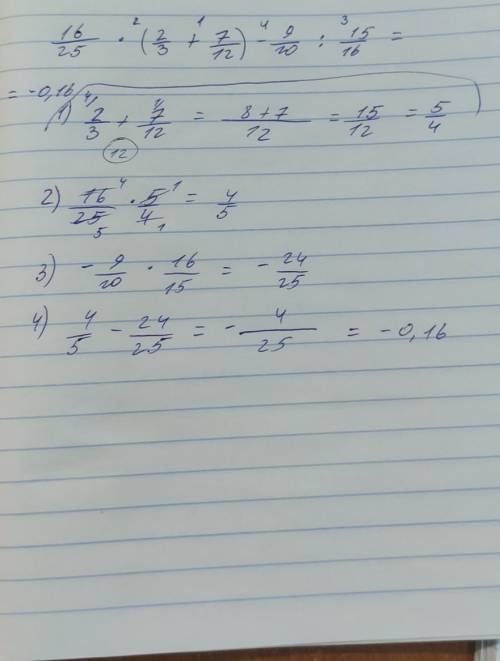 16/25 ·² (2/3 +¹ 7/12) -⁴ 9/10 :³ 15/16 =
= -0,16
1) 2/3 + 7/12 = 8+7/12 = 15/12 = 5/4
12
2) 16/25 · 5/4 = 4/5
3) - 9/10 · 16/15 = - 24/25
4) 4/5 - 24/25 = - 4/25 = -0,16